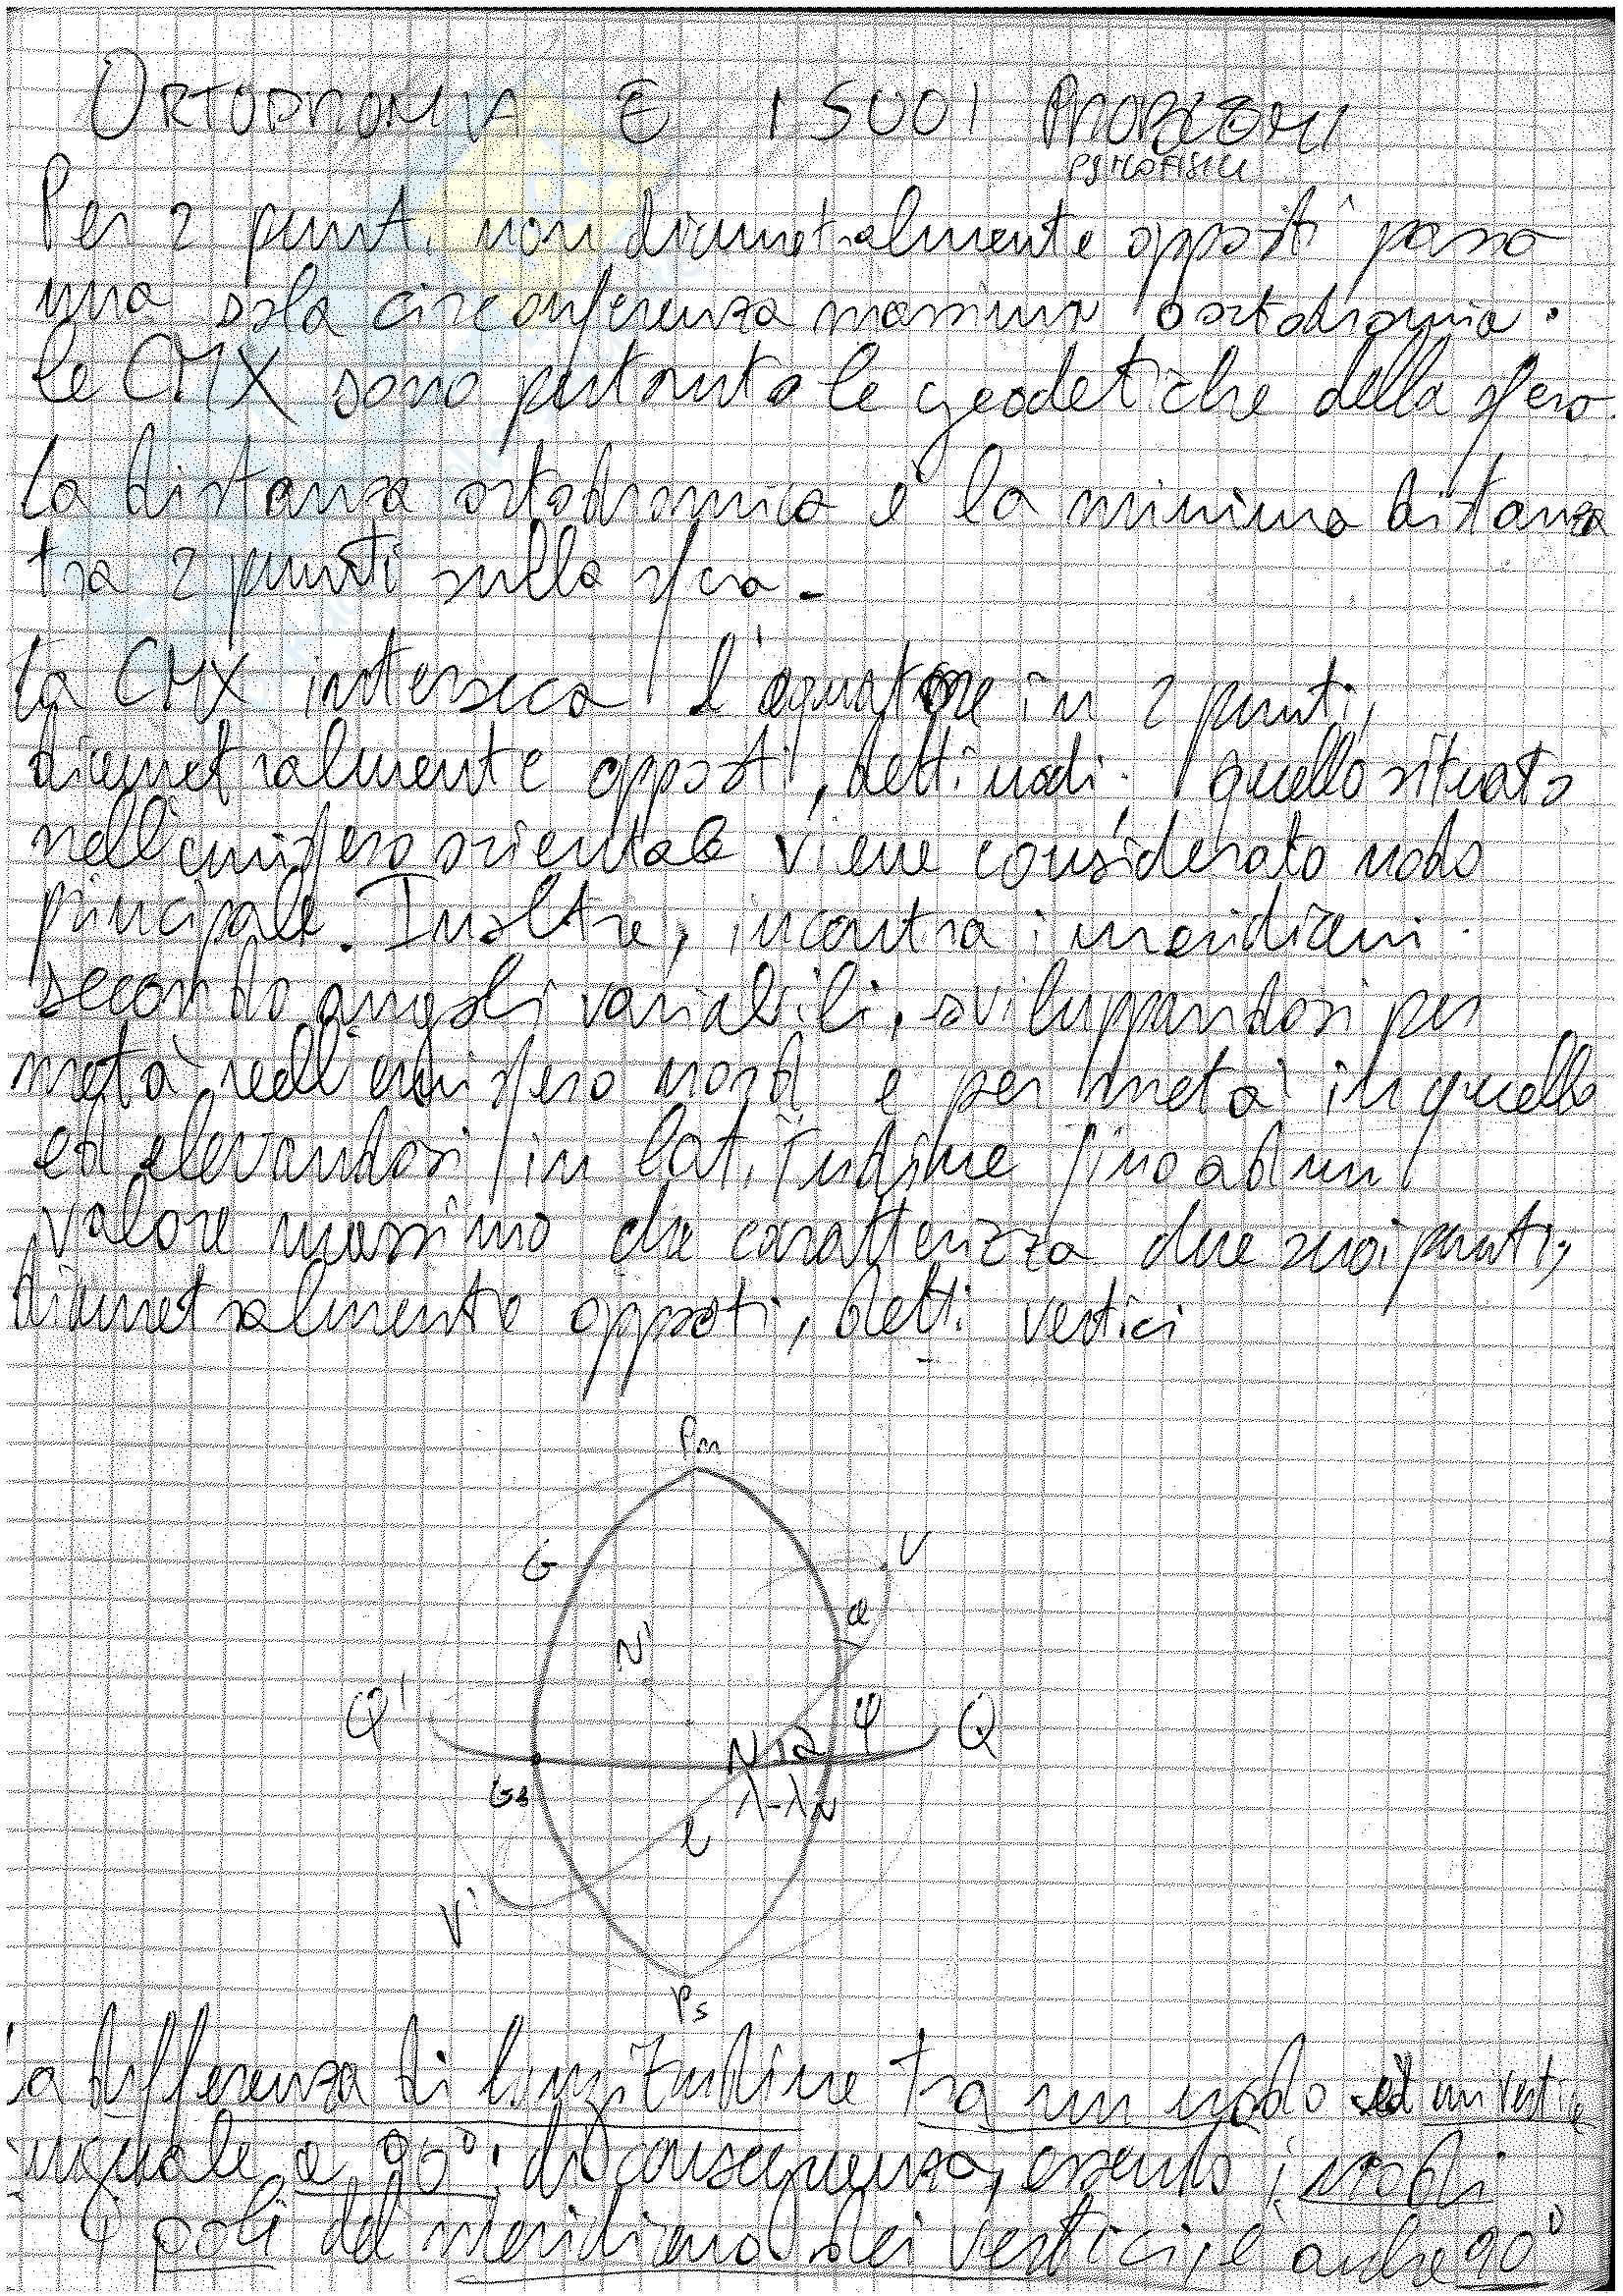 ORTODROMIA E I SUOI PROBLEMI
PSICOFISICI
Per 2 punti non diametralmente opposti passa
una sola circonferenza massima ortodromia.
Le CMX sono pertanto le geodetiche della sfera.
La distanza ortodromica è la minima distanza
tra 2 punti sulla sfera.
La CMX interseca l'equatore in 2 punti,
diametralmente opposti, detti nodi; quello situato
nell'emisfero orientale viene considerato nodo
principale. Inoltre, incontra i meridiani
secondo angoli variabili, sviluppandosi per
metà nell'emisfero nord e per metà in quello
ed elevandosi in latitudine fino ad un
valore massimo che caratterizza due suoi punti,
diametralmente opposti, detti vertici
Pn
G
V
α
N'
Q'
φ
Q
N
λ-λN
V'
Ps
a differenza di longitudine tra un nodo ed un vertice
uguale a 90°; di conseguenza, essendo i nodi
i poli del meridiano dei vertici, è anche 90°